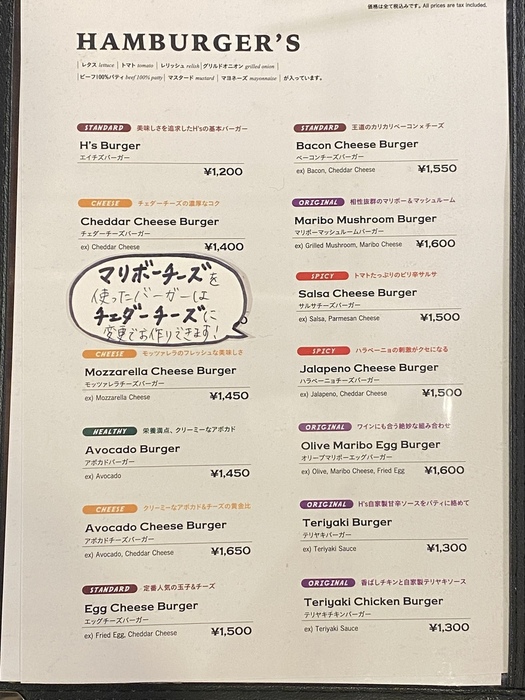 価格は全て税込みです。All prices are tax included.
HAMBURGER'S
レタス lettuce | トマト tomato | レリッシュ relish | グリルドオニオン grilled onion |
ビーフ100%パティ beef 100% patty | マスタード mustard | マヨネーズ mayonnaise | が入っています。
STANDARD 美味しさを追求したH'sの基本バーガー
H's Burger
エイチズバーガー
¥1,200
CHEESE チェダーチーズの濃厚なコク
Cheddar Cheese Burger
チェダーチーズバーガー
ex) Cheddar Cheese ¥1,400
マリボーチーズを
使ったバーガーは
チェダーチーズに
変更でお作りできます!
CHEESE モッツァレラのフレッシュな美味しさ
Mozzarella Cheese Burger
モッツァレラチーズバーガー
ex) Mozzarella Cheese ¥1,450
HEALTHY 栄養満点、クリーミーなアボカド
Avocado Burger
アボカドバーガー
ex) Avocado ¥1,450
CHEESE クリーミーなアボカド&チーズの黄金比
Avocado Cheese Burger
アボカドチーズバーガー
ex) Avocado, Cheddar Cheese ¥1,650
STANDARD 定番人気の玉子&チーズ
Egg Cheese Burger
エッグチーズバーガー
ex) Fried Egg, Cheddar Cheese ¥1,500
STANDARD 王道のカリカリベーコン×チーズ
Bacon Cheese Burger
ベーコンチーズバーガー
ex) Bacon, Cheddar Cheese ¥1,550
ORIGINAL 相性抜群のマリボー&マッシュルーム
Maribo Mushroom Burger
マリボーマッシュルームバーガー
ex) Grilled Mushroom, Maribo Cheese ¥1,600
SPICY トマトたっぷりのピリ辛サルサ
Salsa Cheese Burger
サルサチーズバーガー
ex) Salsa, Parmesan Cheese ¥1,500
SPICY ハラペーニョの刺激がクセになる
Jalapeno Cheese Burger
ハラペーニョチーズバーガー
ex) Jalapeno, Cheddar Cheese ¥1,500
ORIGINAL ワインにも合う絶妙な組み合わせ
Olive Maribo Egg Burger
オリーブマリボーエッグバーガー
ex) Olive, Maribo Cheese, Fried Egg ¥1,600
ORIGINAL H's自家製甘辛ソースをパティに絡めて
Teriyaki Burger
テリヤキバーガー
ex) Teriyaki Sauce ¥1,300
ORIGINAL 香ばしチキンと自家製テリヤキソース
Teriyaki Chicken Burger
テリヤキチキンバーガー
ex) Teriyaki Sauce ¥1,300